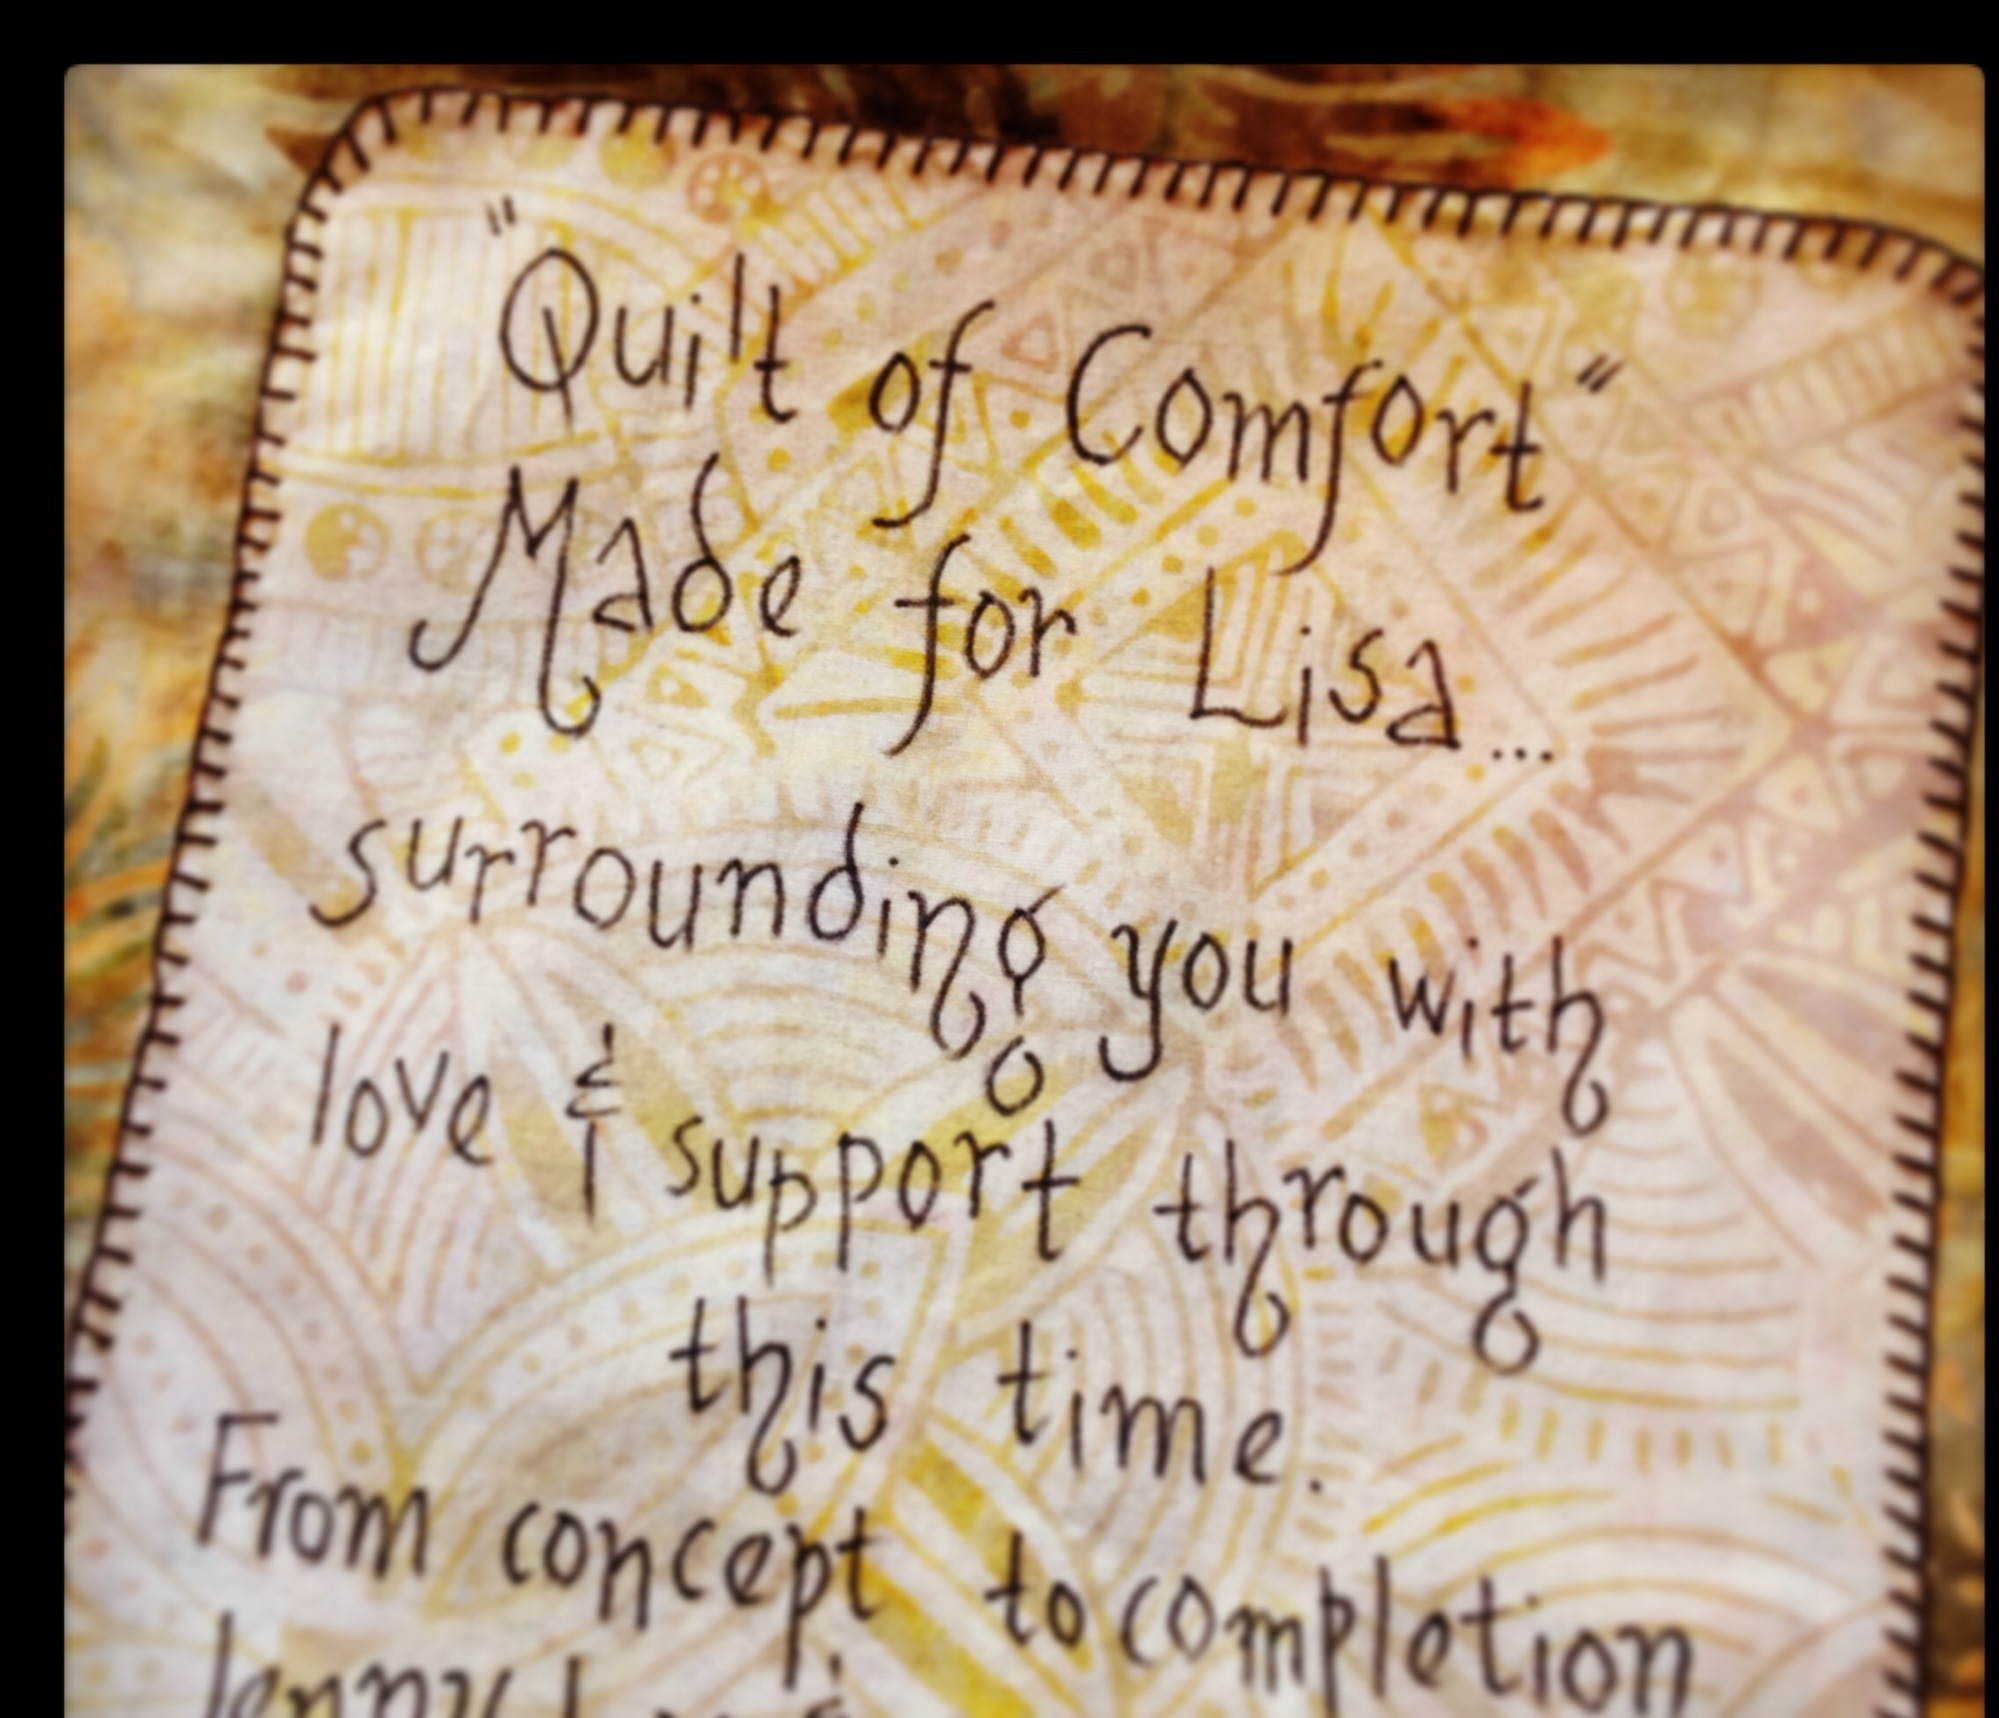 "Quilt of Comfort"
Made for Lisa...
surrounding you with
love & support through
this time.
From concept to completion
Jenny